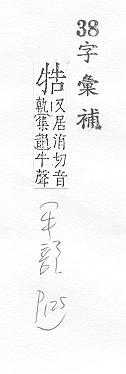 38字彙補
牿
又居消切音
軌集韻牛聲
牛部
P125